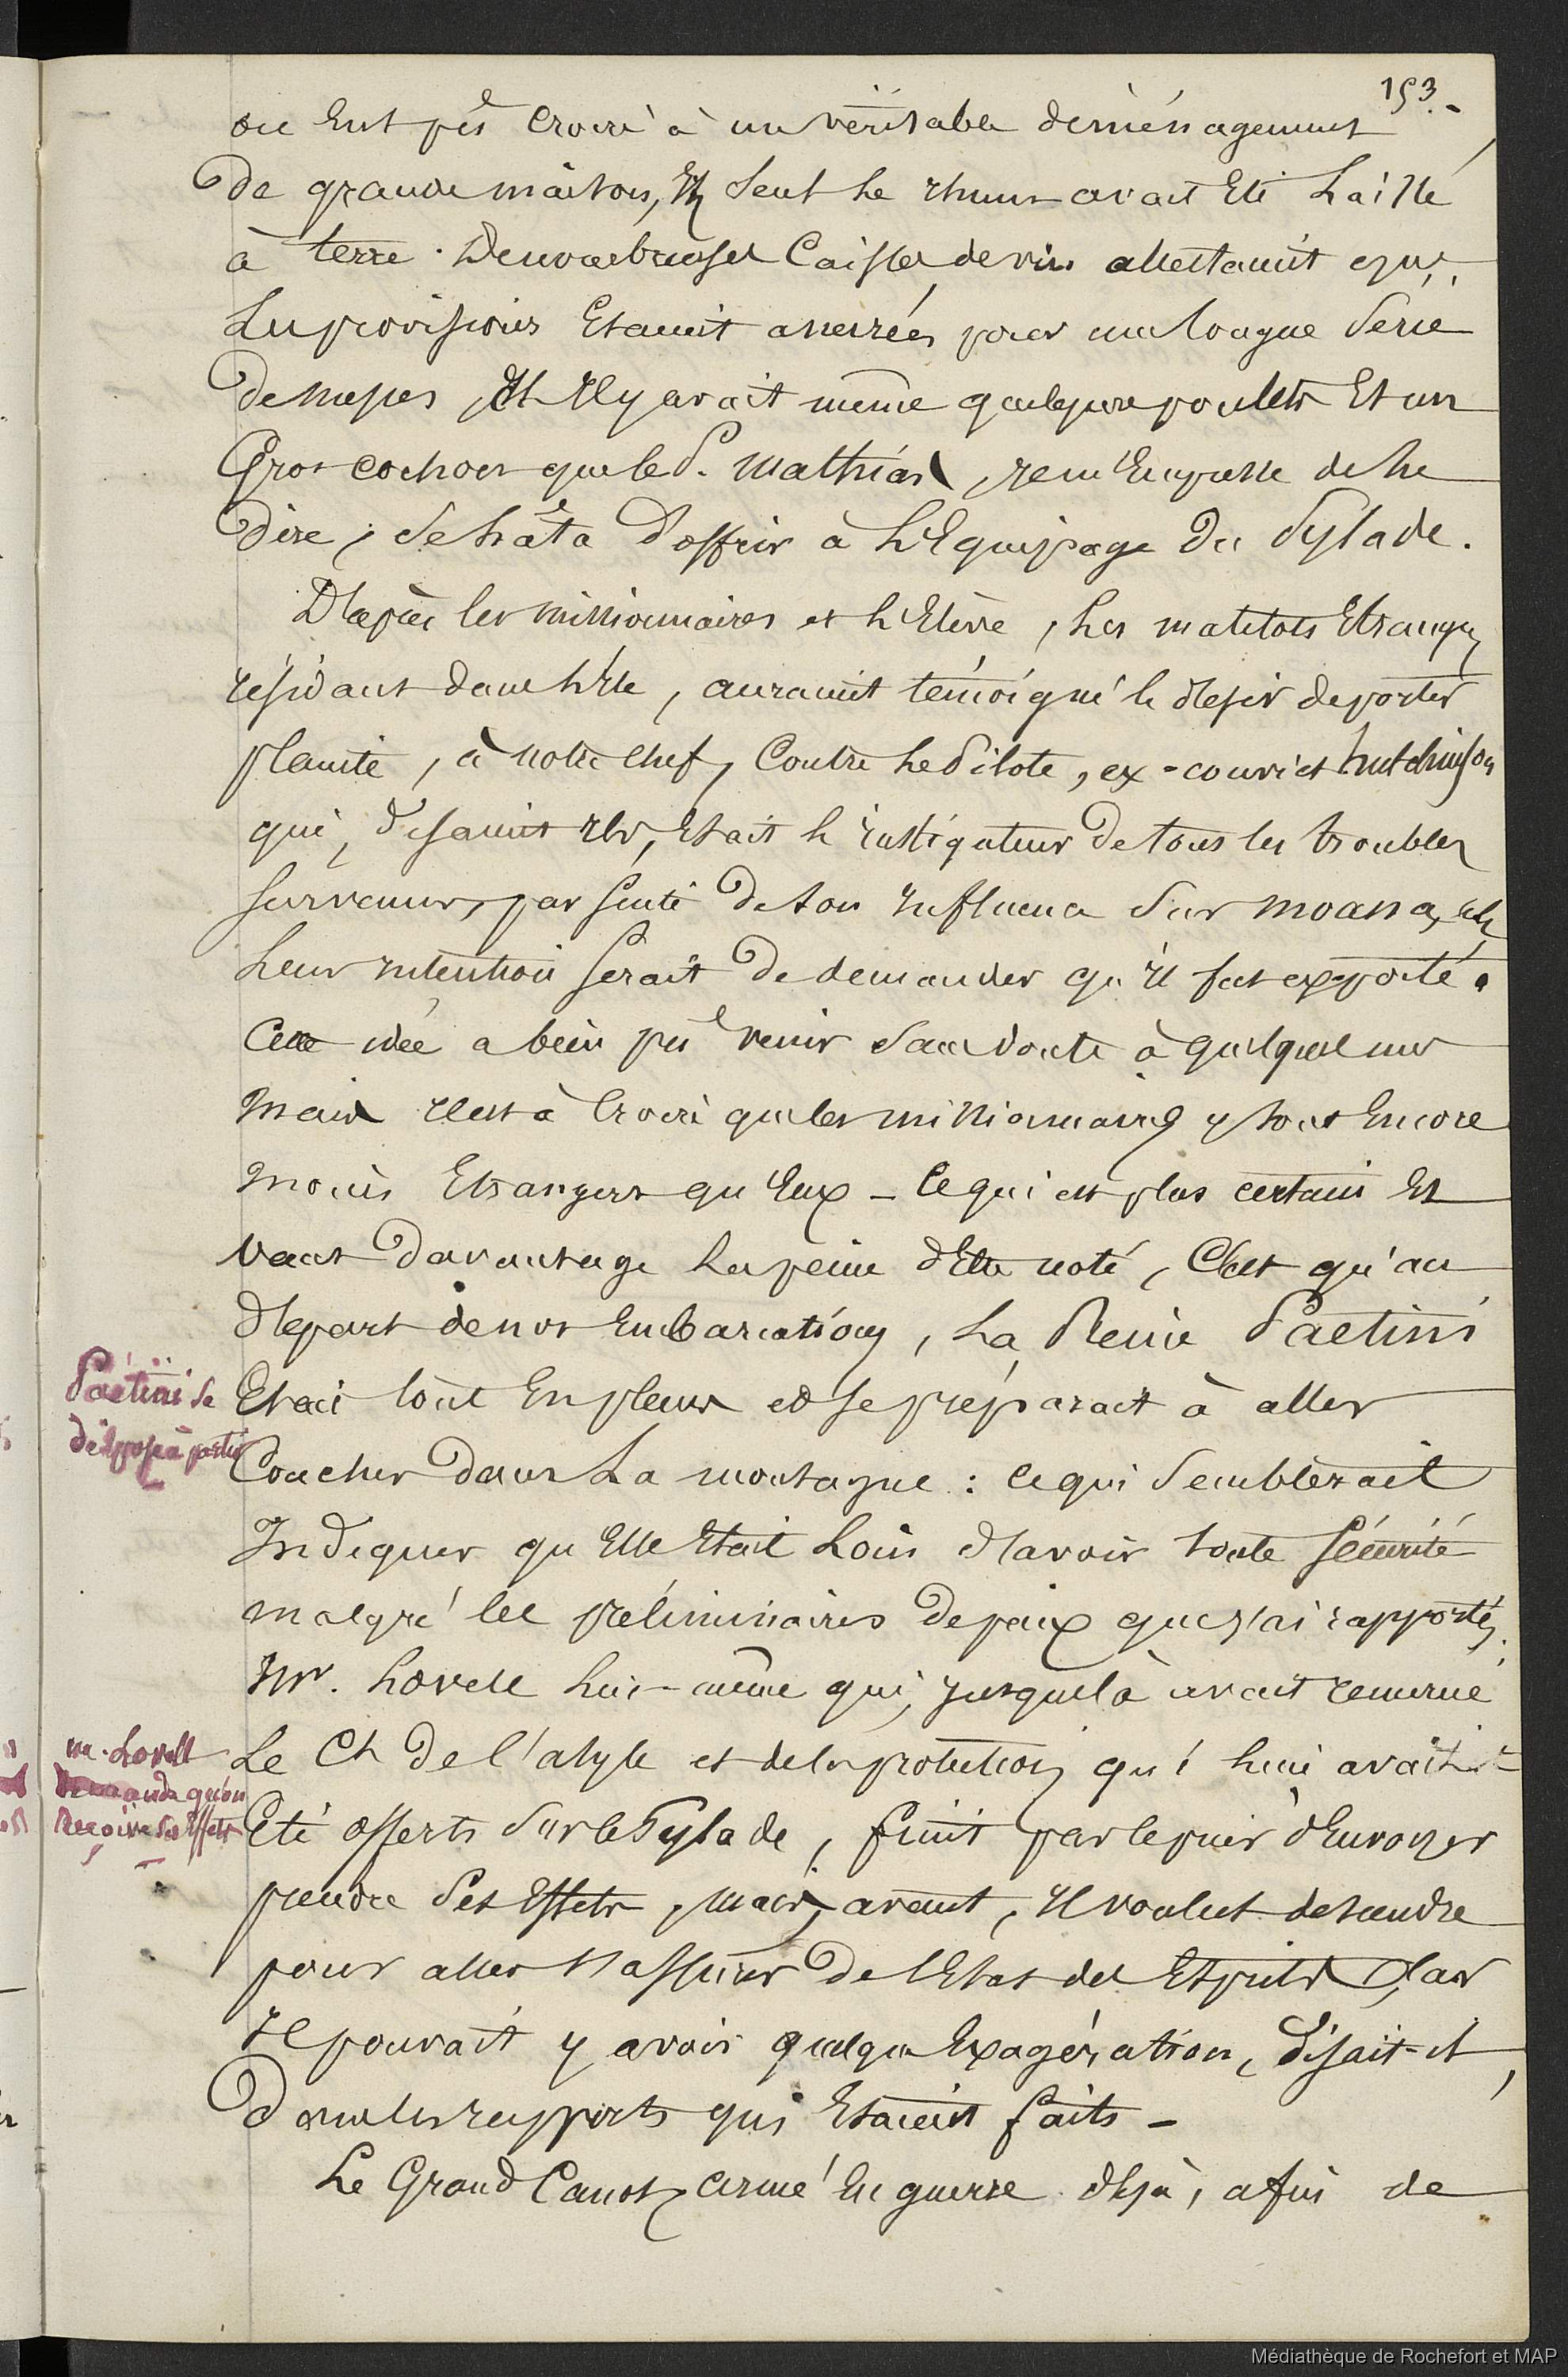 153.-
on eut pû croire à un véritable déménagement
de grande maison, et seul le rhum avait été laissé
à terre. De nombreuses caisses de vin attestaient que
les provisions étaient assurées pour une longue série
de messes, et il y avait même quelques poulets et un
gros cochon que le P. Mathias, je m'empresse de le
dire, se hâta d'offrir à l'Equipage du Pylade.
D'après les missionnaires et l'Elève, les matelots Etrangers
résidant dans l'île, auraient témoigné le désir de porter
plainte, à notre chef, contre le Pilote, ex-convict Hutchinson
qui, disaient ils, était l'instigateur de tous les troubles
survenus, par suite de son influence sur Moana, et
leur intention serait de demander qu'il fut exporté.
Cette idée a bien pû venir sans doute à quelques uns
mais il est à croire que les missionnaires y sont encore
moins Etrangers qu'eux - Ce qui est plus certain et
vaut davantage la peine d'être noté, c'est qu'au
départ de nos embarcations, la Reine Paetini
était tout en pleurs et se préparait à aller
coucher dans la montagne : ce qui semblerait
indiquer qu'Elle était loin d'avoir toute sécurité
malgré les préliminaires de paix que j'ai rapportés.
Mr. Lovell lui-même qui, jusque là avait remercié
le Ct de l'asyle et de la protection qui lui avaient
été offerts sur le Pylade, finit par le prier d'envoyer
prendre ses effets, mais, avant, il voulut descendre
pour aller s'assurer de l'Etat des Esprits, car
il pouvait y avoir quelque exagération, disait-il,
dans les rapports qui étaient faits -
Le Grand Canot, armé en guerre déjà, afin de
Paetini se
dispose à partir
M. Lovell
demande qu'on
reçoive ses effets
Médiathèque de Rochefort et MAP